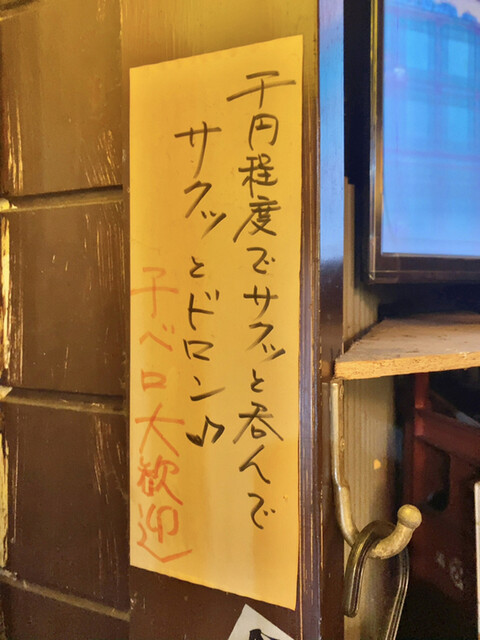 千円程度でサクッと呑んで
サクッとドロン♪
千ベロ大歓迎